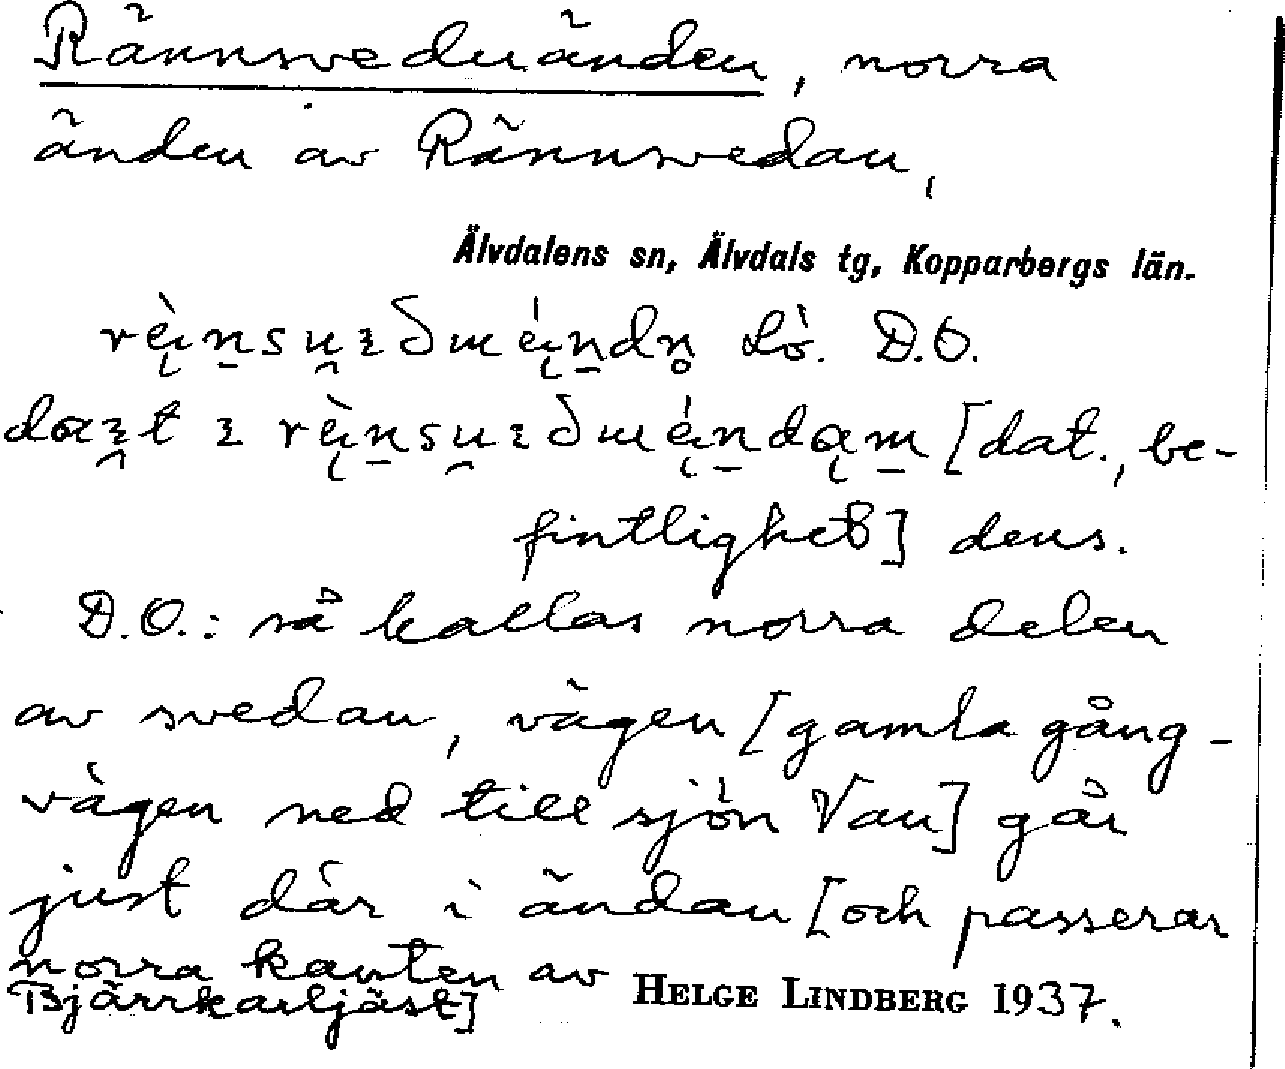 Rännsvednänden, norra
änden av Rännsvedan,
Älvdalens sn, Älvdals tg, Kopparbergs län.
Lò. D.O.
[dat., be-
fintlighet] dens.
D.O.: så kallas norra delen
av svedan, vägen [gamla gång-
vägen ned till sjön Van] går
just där i ändan [och passerar
norra kanten av
Björrkarljäst]
HELGE LINDBERG 1937.